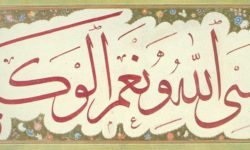 بى اَللّٰهُ وَنِعْمَ اَلْوَكـ